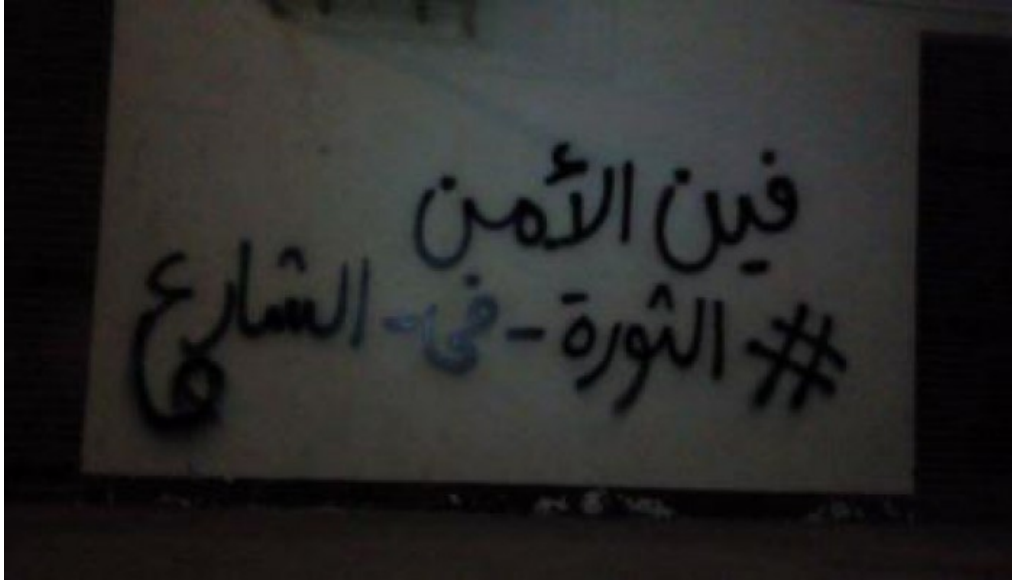 فين الأمن
#الثورة-في-الشارع